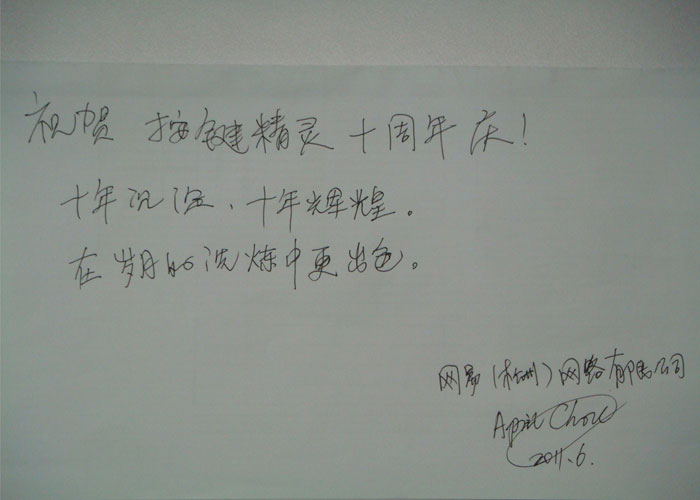 祝贺 按键精灵 十周年庆!
十年沉淀、十年辉煌。
在岁月的洗炼中更出色。
网易(杭州)网络有限公司
April Chou
2011.6.